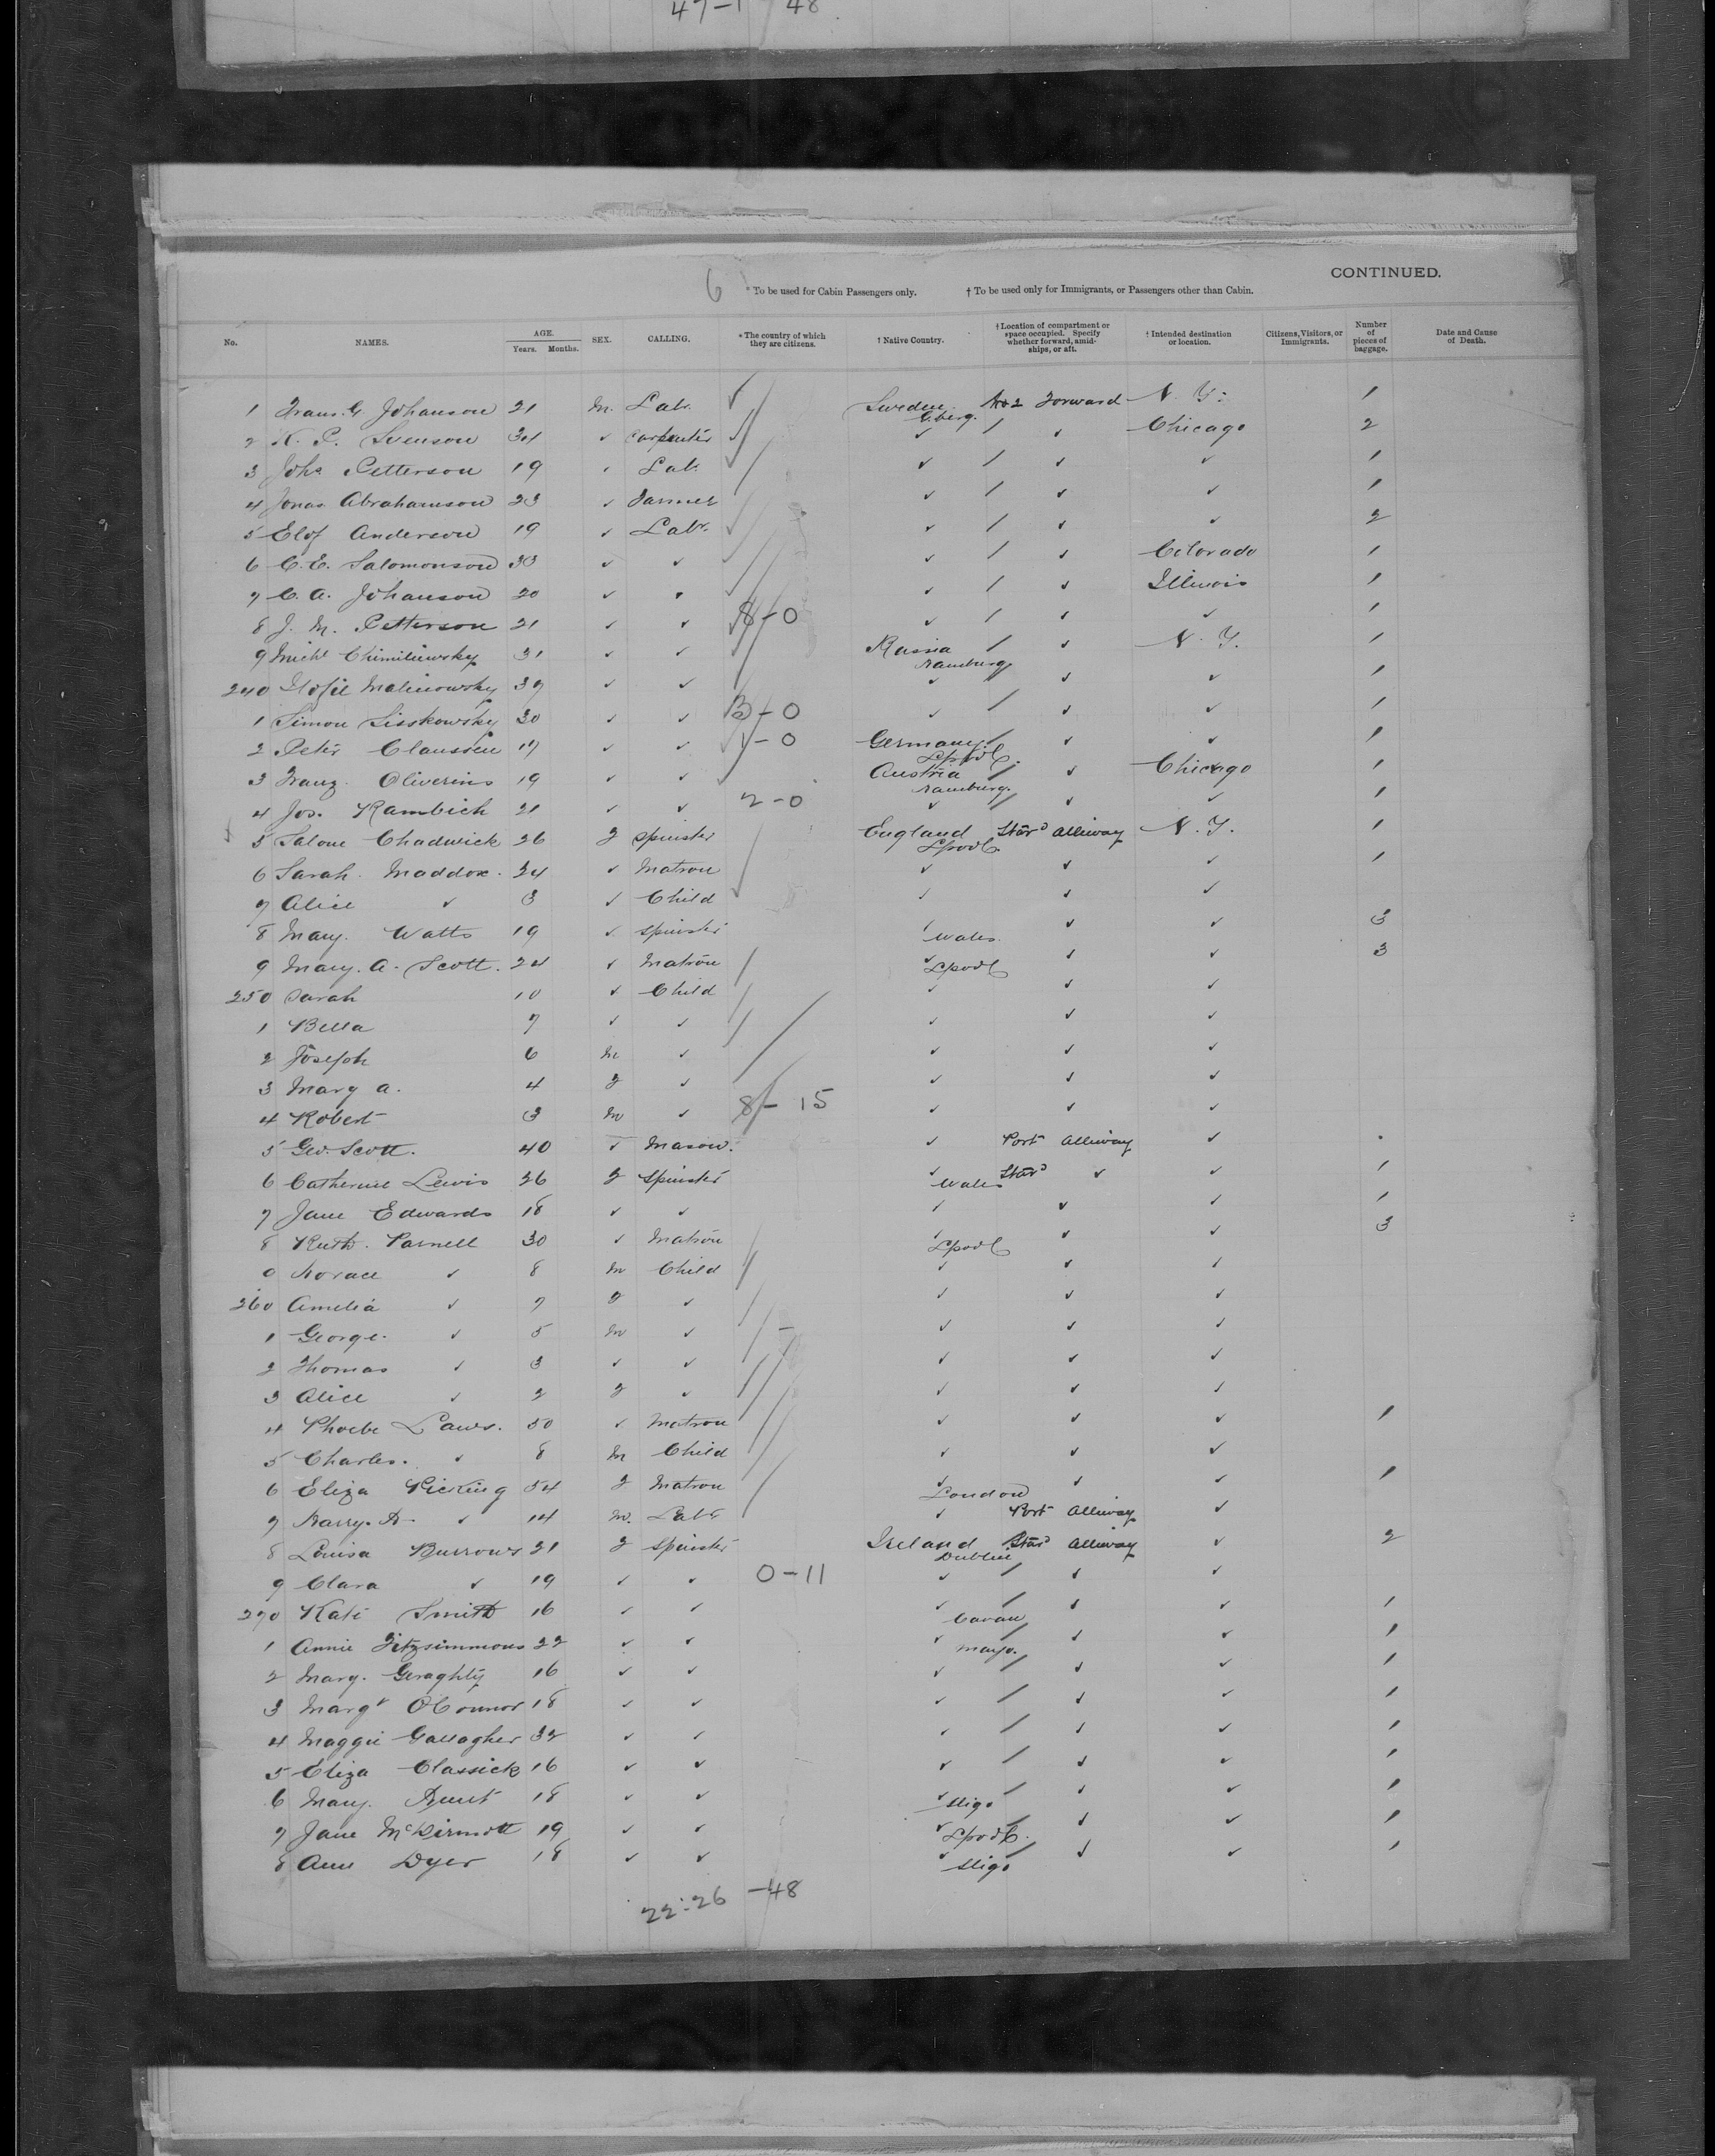 47-1 48
6
CONTINUED.
* To be used for Cabin Passengers only. † To be used only for Immigrants, or Passengers other than Cabin.
No. NAMES. AGE. Years. Months. SEX. CALLING. * The country of which they are citizens. † Native Country. † Location of compartment or space occupied. Specify whether forward, amidships, or aft. † Intended destination or location. Citizens, Visitors, or Immigrants. Number of pieces of baggage. Date and Cause of Death.
1 Frans. G. Johanson 21 M. Lab. ✓ Sweden G.berg. No 2 Forward N. Y. 1
2 K. P. Svenson 34 ✓ Carpenter ✓ ✓ / ✓ Chicago 2
3 Johs Petterson 19 ✓ Lab. ✓ ✓ / ✓ ✓ 1
4 Jonas Abrahamson 23 ✓ Farmer ✓ / ✓ ✓ 1
5 Elof Anderson 19 ✓ Labr. ✓ ✓ / ✓ ✓ 2
6 C. E. Salomonson 33 ✓ ✓ ✓ / ✓ Colorado 1
7 C. A. Johanson 20 ✓ ✓ ✓ / ✓ Illinois 1
8 J. M. Petterson 21 ✓ ✓ 8-0 ✓ / ✓ ✓ 1
9 Michl Chimiliewsky 31 ✓ ✓ Russia Hamburg / ✓ N. Y. 1
240 Malinowsky 37 ✓ ✓ ✓ ✓ ✓ 1
1 Simon Lisskowsky 30 ✓ ✓ 3-0 ✓ / ✓ ✓ 1
2 Peter Claussen 17 ✓ ✓ 1-0 Germany Lpool. / ✓ ✓ 1
3 Franz Oliverins 19 ✓ ✓ Austria Hamburg. / ✓ Chicago 1
4 Jos. Kambich 21 ✓ ✓ 2-0 ✓ / ✓ ✓ 1
5 Salome Chadwick 26 F Spinster England Lpool. Stard Alliway N. Y. 1
6 Sarah Maddox. 24 ✓ Matron ✓ ✓ ✓ 1
7 Alice ✓ 3 ✓ Child ✓ ✓ ✓
8 Mary. Watts 19 ✓ Spinster ✓ Wales. ✓ ✓ 3
9 Mary. A. Scott. 24 ✓ Matron ✓ Lpool ✓ ✓ 3
250 Sarah 10 ✓ Child ✓ ✓ ✓
1 Bella 7 ✓ ✓ ✓ ✓ ✓
2 Joseph 6 M ✓ ✓ ✓ ✓
3 Mary A. 4 F ✓ ✓ ✓ ✓
4 Robert 3 M ✓ 8-15 ✓ ✓ ✓
5 Geo. Scott. 40 ✓ Mason. ✓ Port Alliway ✓
6 Catherine Lewis 26 F Spinster ✓ Wales Stard ✓ ✓ 1
7 Jane Edwards 18 ✓ ✓ ✓ ✓ ✓ 1
8 Ruth. Parnell 30 ✓ Matron ✓ Lpool ✓ ✓ 3
9 Horace ✓ 8 M Child ✓ ✓ ✓
260 Amelia ✓ 7 F ✓ ✓ ✓ ✓
1 George. ✓ 5 M ✓ ✓ ✓ ✓
2 Thomas ✓ 3 ✓ ✓ ✓ ✓ ✓
3 Alice ✓ 2 F ✓ ✓ ✓ ✓
4 Phoebe Laws. 50 ✓ Matron ✓ ✓ ✓ 1
5 Charles. ✓ 8 M Child ✓ ✓ ✓
6 Eliza Picking 54 F Matron ✓ London ✓ ✓ 1
7 Harry. ✓ 14 M. Labr ✓ Port Alliway ✓
8 Louisa Burrows 21 F Spinster Ireland Dublin Stard Alliway ✓ 2
9 Clara ✓ 19 ✓ ✓ 0-11 ✓ / ✓ ✓
270 Kate Smith 16 ✓ ✓ ✓ Cavan / ✓ ✓ 1
1 Annie Fitzsimmons 22 ✓ ✓ ✓ Mayo. / ✓ ✓ 1
2 Mary. Geraghty 16 ✓ ✓ ✓ / ✓ ✓ 1
3 Margt O'Connor 18 ✓ ✓ ✓ / ✓ ✓ 1
4 Maggie Gallagher 32 ✓ ✓ ✓ / ✓ ✓ 1
5 Eliza Classick 16 ✓ ✓ ✓ / ✓ ✓ 1
6 Mary. 18 ✓ ✓ ✓ Sligo / ✓ ✓ 1
7 Jane McDermott 19 ✓ ✓ ✓ Lpool. / ✓ ✓ 1
8 Ann Dyer 18 ✓ ✓ ✓ Sligo / ✓ ✓ 1
22-26 -48